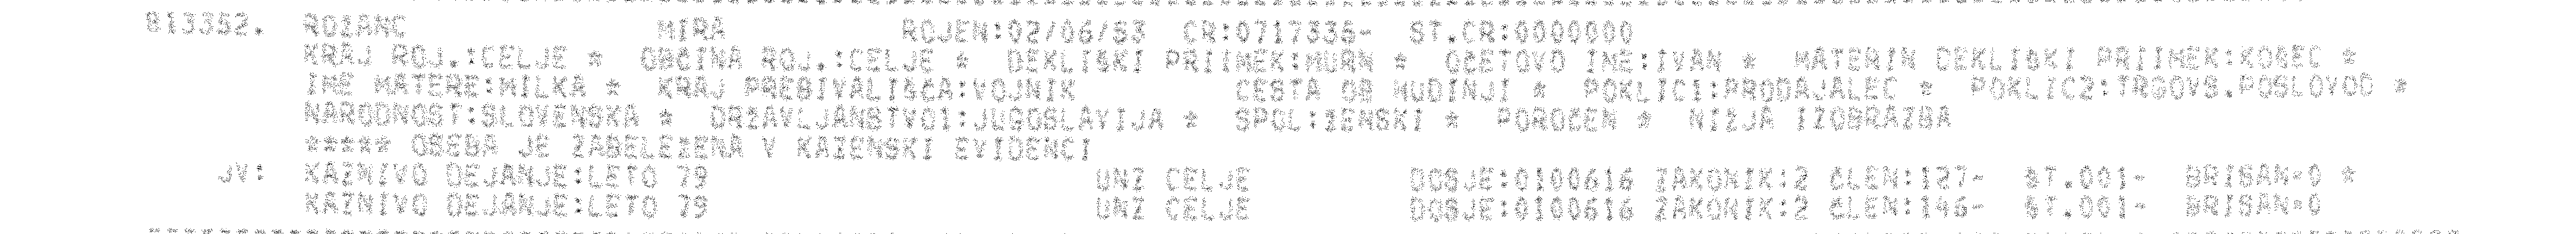 813352. ROZANC MIRA ROJEN:02/06/53 CR:0717335- ST.CR:0000000
KRAJ ROJ.:CELJE * OBČINA ROJ.:CELJE * DEKLIŠKI PRIIMEK:MURN * OČETOVO IME:IVAN * MATERIN DEKLIŠKI PRIIMEK:KOSEC *
IME MATERE:MILKA * KRAJ PREBIVALIŠČA:VOJNIK CESTA OB HUDINJI * POKLIC1:PRODAJALEC * POKLIC2:TRGOVS.POSLOVOD *
NARODNOST:SLOVENSKA * DRŽAVLJANSTVO1:JUGOSLAVIJA * SPOL:ŽENSKI * POROČEN * NIŽJA IZOBRAZBA
***** OSEBA JE ZABELEŽENA V KAZENSKI EVIDENCI
JV: KAZNIVO DEJANJE:LETO 79 UNZ CELJE DOSJE:0100616 ZAKONIK:2 ČLEN:127- ŠT.001- BRISAN=0 *
KAZNIVO DEJANJE:LETO 79 UNZ CELJE DOSJE:0100616 ZAKONIK:2 ČLEN:146- ŠT.001- BRISAN=0